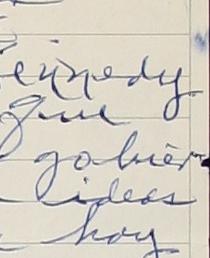 ennedy
que
gobier
ideas
hoy